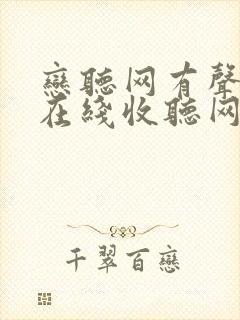 戀聽网有聲
在綫收聽网
千翠百戀